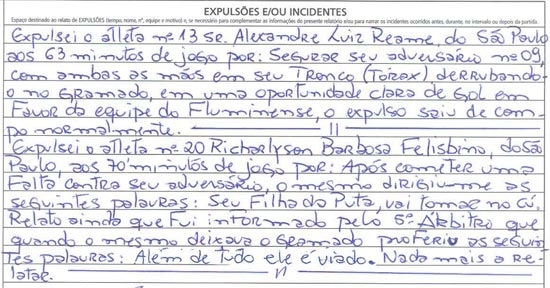 EXPULSÕES E/OU INCIDENTES
Espaço destinado ao relato de EXPULSÕES (tempo, nome, nº, equipe e motivo) e, se necessário para complementar as informações do presente relatório e/ou para narrar os incidentes ocorridos antes, durante, no intervalo ou depois da partida.
Expulsei o atleta nº 13 Sr. Alexandre Luiz Reame, do São Paulo
aos 63 minutos de jogo por: Segurar seu adversário nº 09,
com ambas as mãos em seu Tronco (Tórax) derrubando-
o no gramado, em uma oportunidade clara de gol em
Favor da equipe do Fluminense, o expulso saiu de cam-
po normalmente. ——— 11 ———
Expulsei o atleta nº 20 Richarlyson Barbosa Felisbino, do São
Paulo, aos 70 minutos de jogo por: Após cometer uma
Falta contra seu adversário, o mesmo dirigiu me as
seguintes palavras: Seu Filho da Puta, vai tomar no cú.
Relato ainda que Fui informado pelo 5º Árbitro que
quando o mesmo deixava o gramado proferiu as seguin
tes palavras: Além de tudo ele é viado. Nada mais a re-
latar. ——— 11 ———